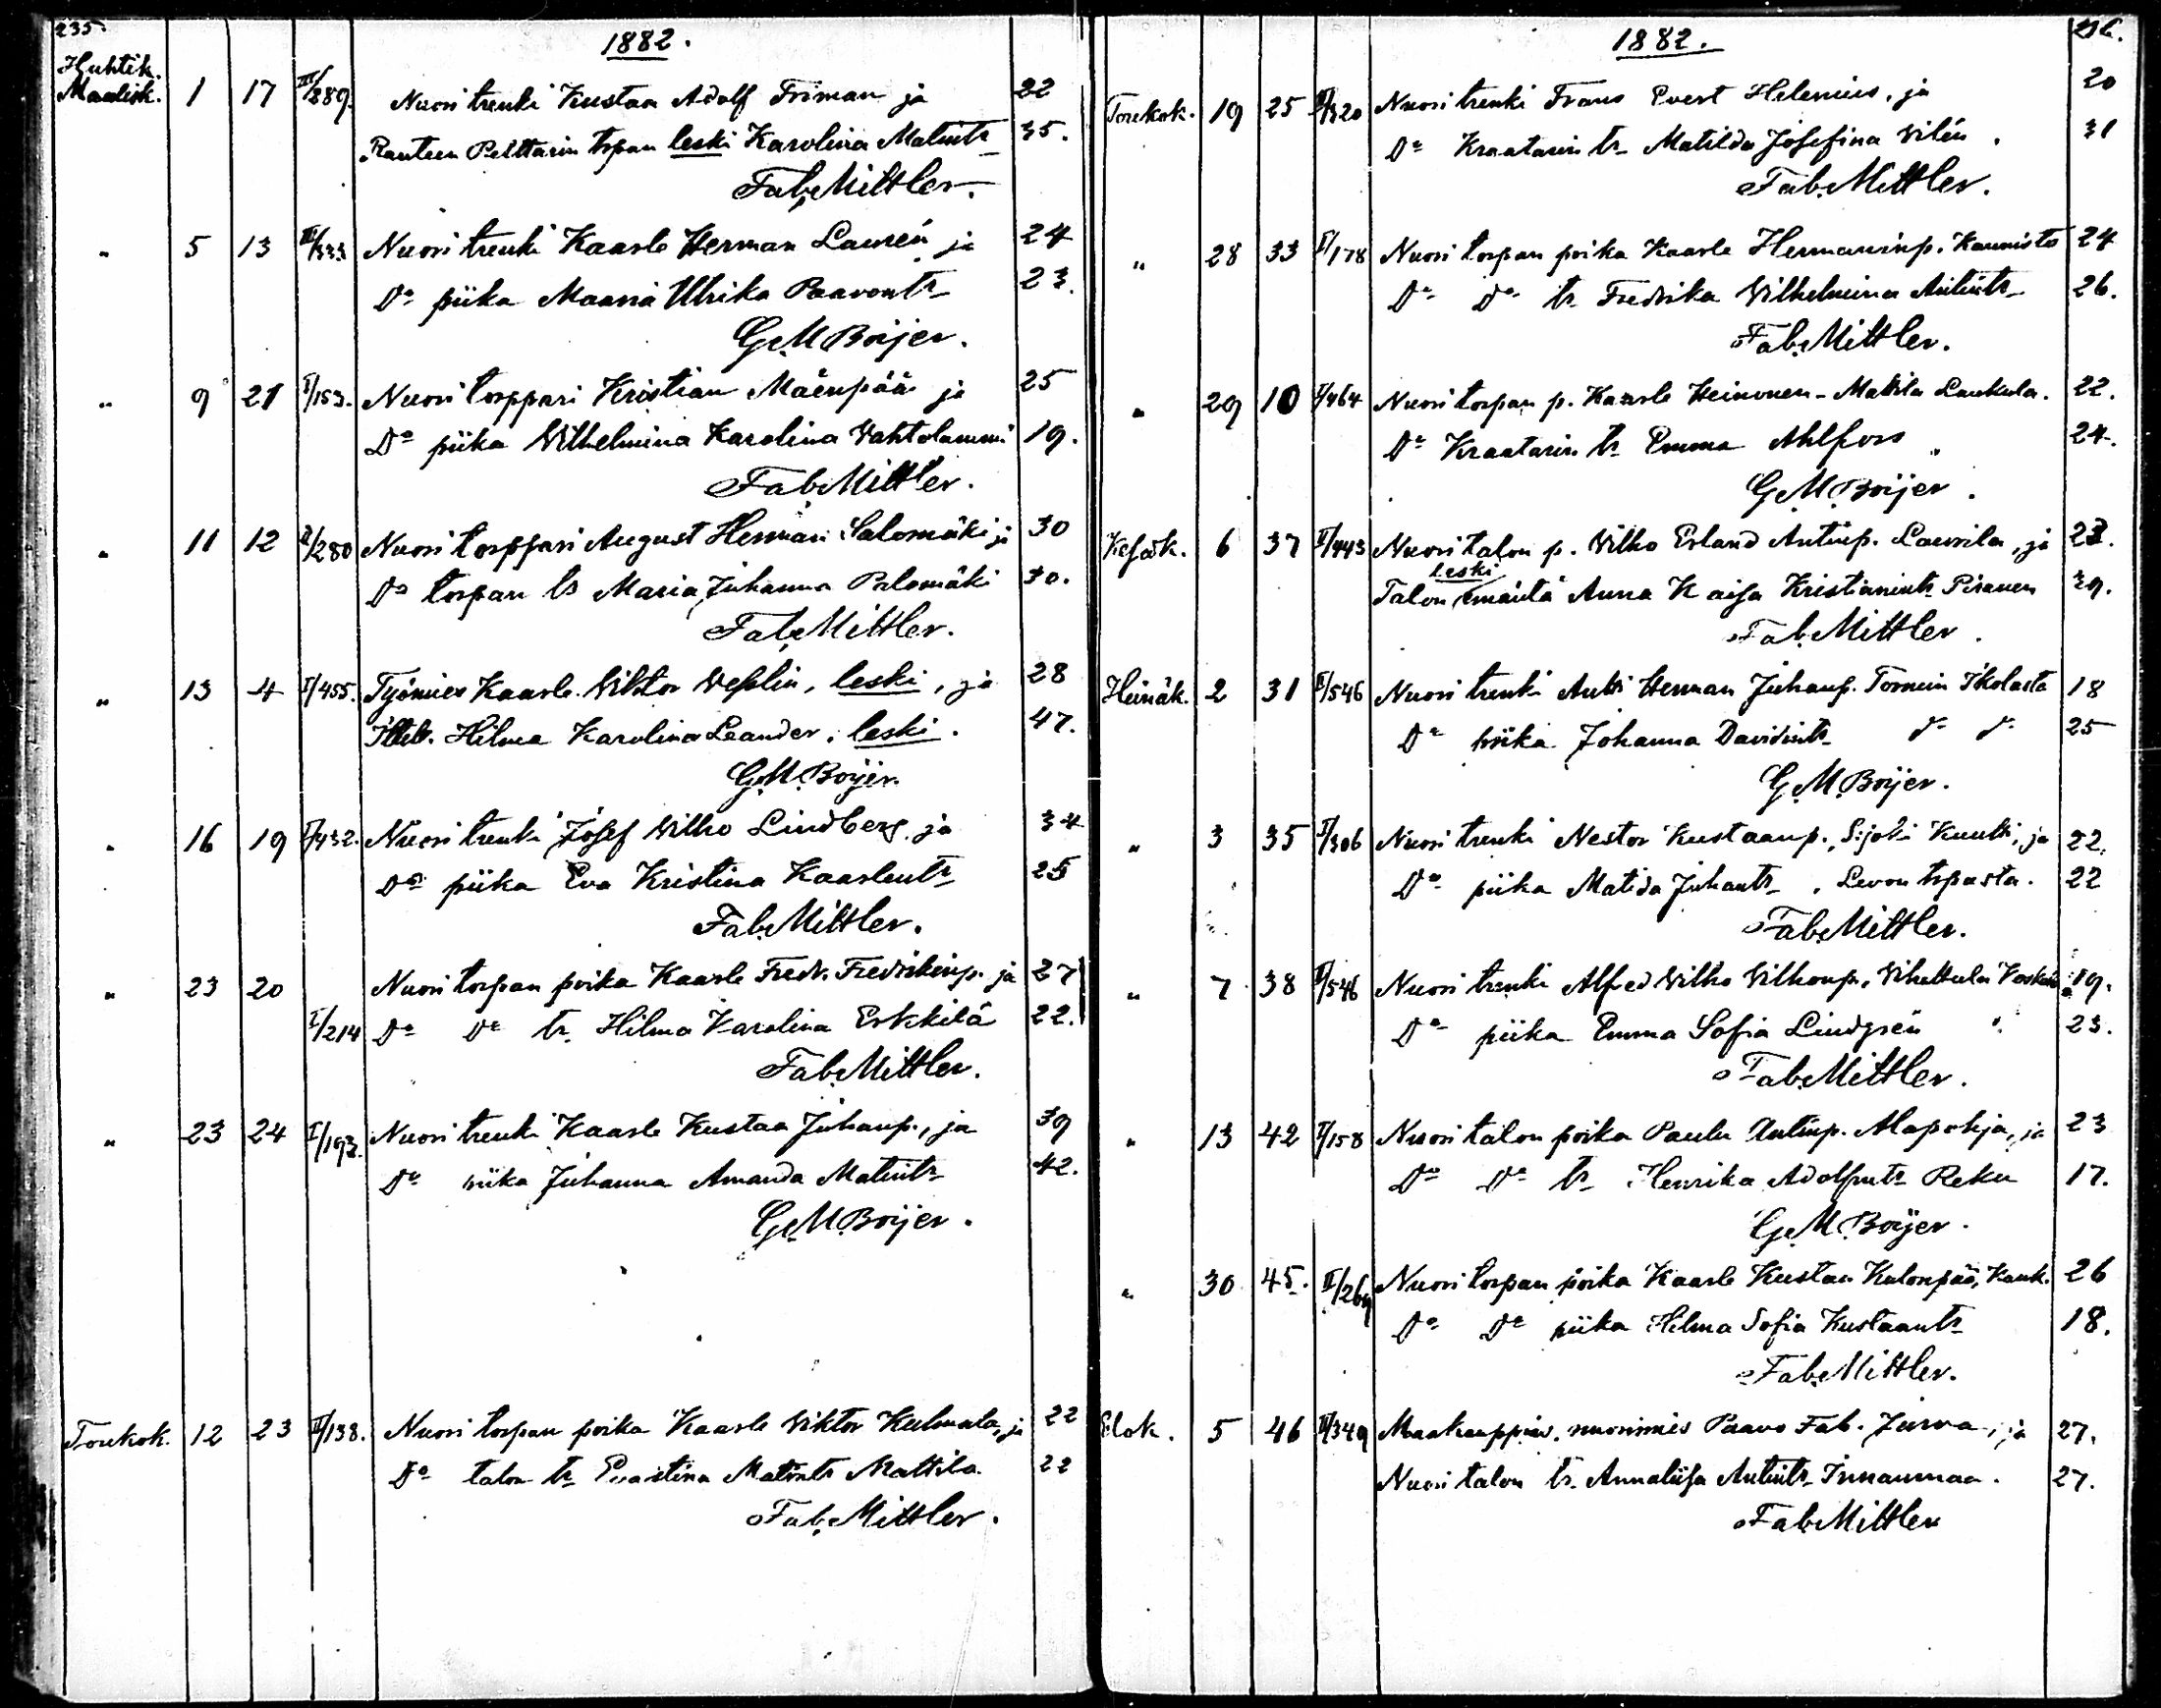 235.
1882.
Huhtik.
Maalisk. 1 17 III/289. Nuori trenki Kustaa Adolf Friman ja 22
Ranteen Pelttarin trpan leski Karolina Matintr 35.
Fab. Mittler.
" 5 13 III/333 Nuori trenki Kaarle Herman Laurén ja 24
Do piika Maaria Ulrika Paavontr 23.
G. M. Boijer.
" 9 21 I/153. Nuori torppari Kristian Mäenpää ja 25
Do piika Wilhelmina Karolina Wahtolammi 19.
Fab. Mittler.
" 11 12 II/280 Nuori torppari August Herman Salomäki ja 30
Do torpan tr Maria Juhanna Palomäki 30.
Fab. Mittler.
" 13 4 I/455. Työmies Kaarle Viktor Weslin, leski, ja 28
Ittell. Hilma Karolina Leander, leski. 47.
G. M. Boijer.
" 16 19 I/432. Nuori trenki Josef Wilho Lindberg, ja 34
Do piika Eva Kristina Kaarlentr 25
Fab. Mittler.
" 23 20 Nuori torpan poika Kaarle Fredr. Fredrikinp. ja 27
I/214 Do Do tr. Hilma Karolina Erkkilä 22.
Fab. Mittler.
" 23 24 I/193. Nuori trenki Kaarle Kustaa Juhanp., ja 39
Do piika Juhanna Amanda Matintr 42.
G. M. Boijer.
Toukok. 12 23 II/138. Nuori torpan poika Kaarle Viktor Kulmala, ja 22
Do talon tr Evastina Matintr Mattila 22
Fab. Mittler.
236.
1882.
Toukok. 19 25 II/320 Nuori trenki Frans Evert Helenius, ja 20
Do Kraatarin tr Matilda Josefina Vilén. 31
Fab. Mittler.
" 28 33 I/178 Nuori torpan poika Kaarle Hermaninp. Kaunisto 24
Do Do tr Fredrika Wilhelmina Antintr 26.
Fab. Mittler.
" 29 10 I/464 Nuori torpan p. Kaarle Heinonen - Mattila Laukula. 22.
Do Kraatarin tr Emma Ahlfors 24.
G. M. Boijer.
Kesäk. 6 37 II/443 Nuori talon p. Wilho Erland Antinp. Laurila, ja 23.
leski
Talon emäntä Anna Kaisa Kristianintr Piranen 39.
Fab. Mittler.
Heinäk. 2 31 II/546 Nuori trenki Antti Herman Juhanp. Tornein Ikolasta 18
Do piika Johanna Davidintr do do 25
G. M. Boijer.
" 3 35 I/306 Nuori trenki Nestor Kustaanp., S:joki Kuutti, ja 22.
Do piika Matida Juhantr, Levon trpasta. 22
Fab. Mittler.
" 7 38 II/546 Nuori trenki Alfred Wilho Wilhonp., Vihattula 19.
Do piika Emma Sofia Lindgrén " 23.
Fab. Mittler.
" 13 42 I/158 Nuori talon poika Paulu Antinp. Alapohja, ja 23
Do Do tr Henrika Adolfintr Reku 17.
G. M. Boijer.
" 30 45. II/269 Nuori torpan poika Kaarle Kustaa Kulonpää, Kauk. 26
Do Do piika Hilma Sofia Kustaantr 18.
Fab. Mittler.
Elok. 5 46 II/349 Maakauppias, nuorimies Paavo Fab. Jurva, ja 27.
Nuori talon tr. Annaliisa Antintr Innanmaa. 27.
Fab. Mittler